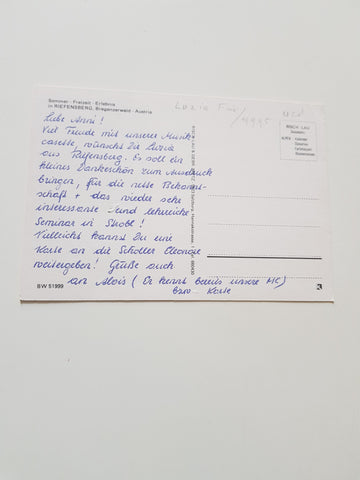 Sommer · Freizeit · Erlebnis
in RIEFENSBERG, Bregenzerwald - Austria
Liebe Anni!
Viel Freude mit unserer Musik-
casette, wünscht Dir Luzia
aus Riefensberg. Es soll ein
kleines Dankeschön zum Ausdruck
bringen, für die nette Bekannt-
schaft + das wieder sehr
interessante und lehrreiche
Seminar in Strobl!
Vielleicht kannst Du eine
Karte an die Scholler Eleonore
weitergeben! Grüße auch
an Alois (Er kennt bereits unsere MC)
bzw. Karte
BW 51999
Luzia
RISCH LAU